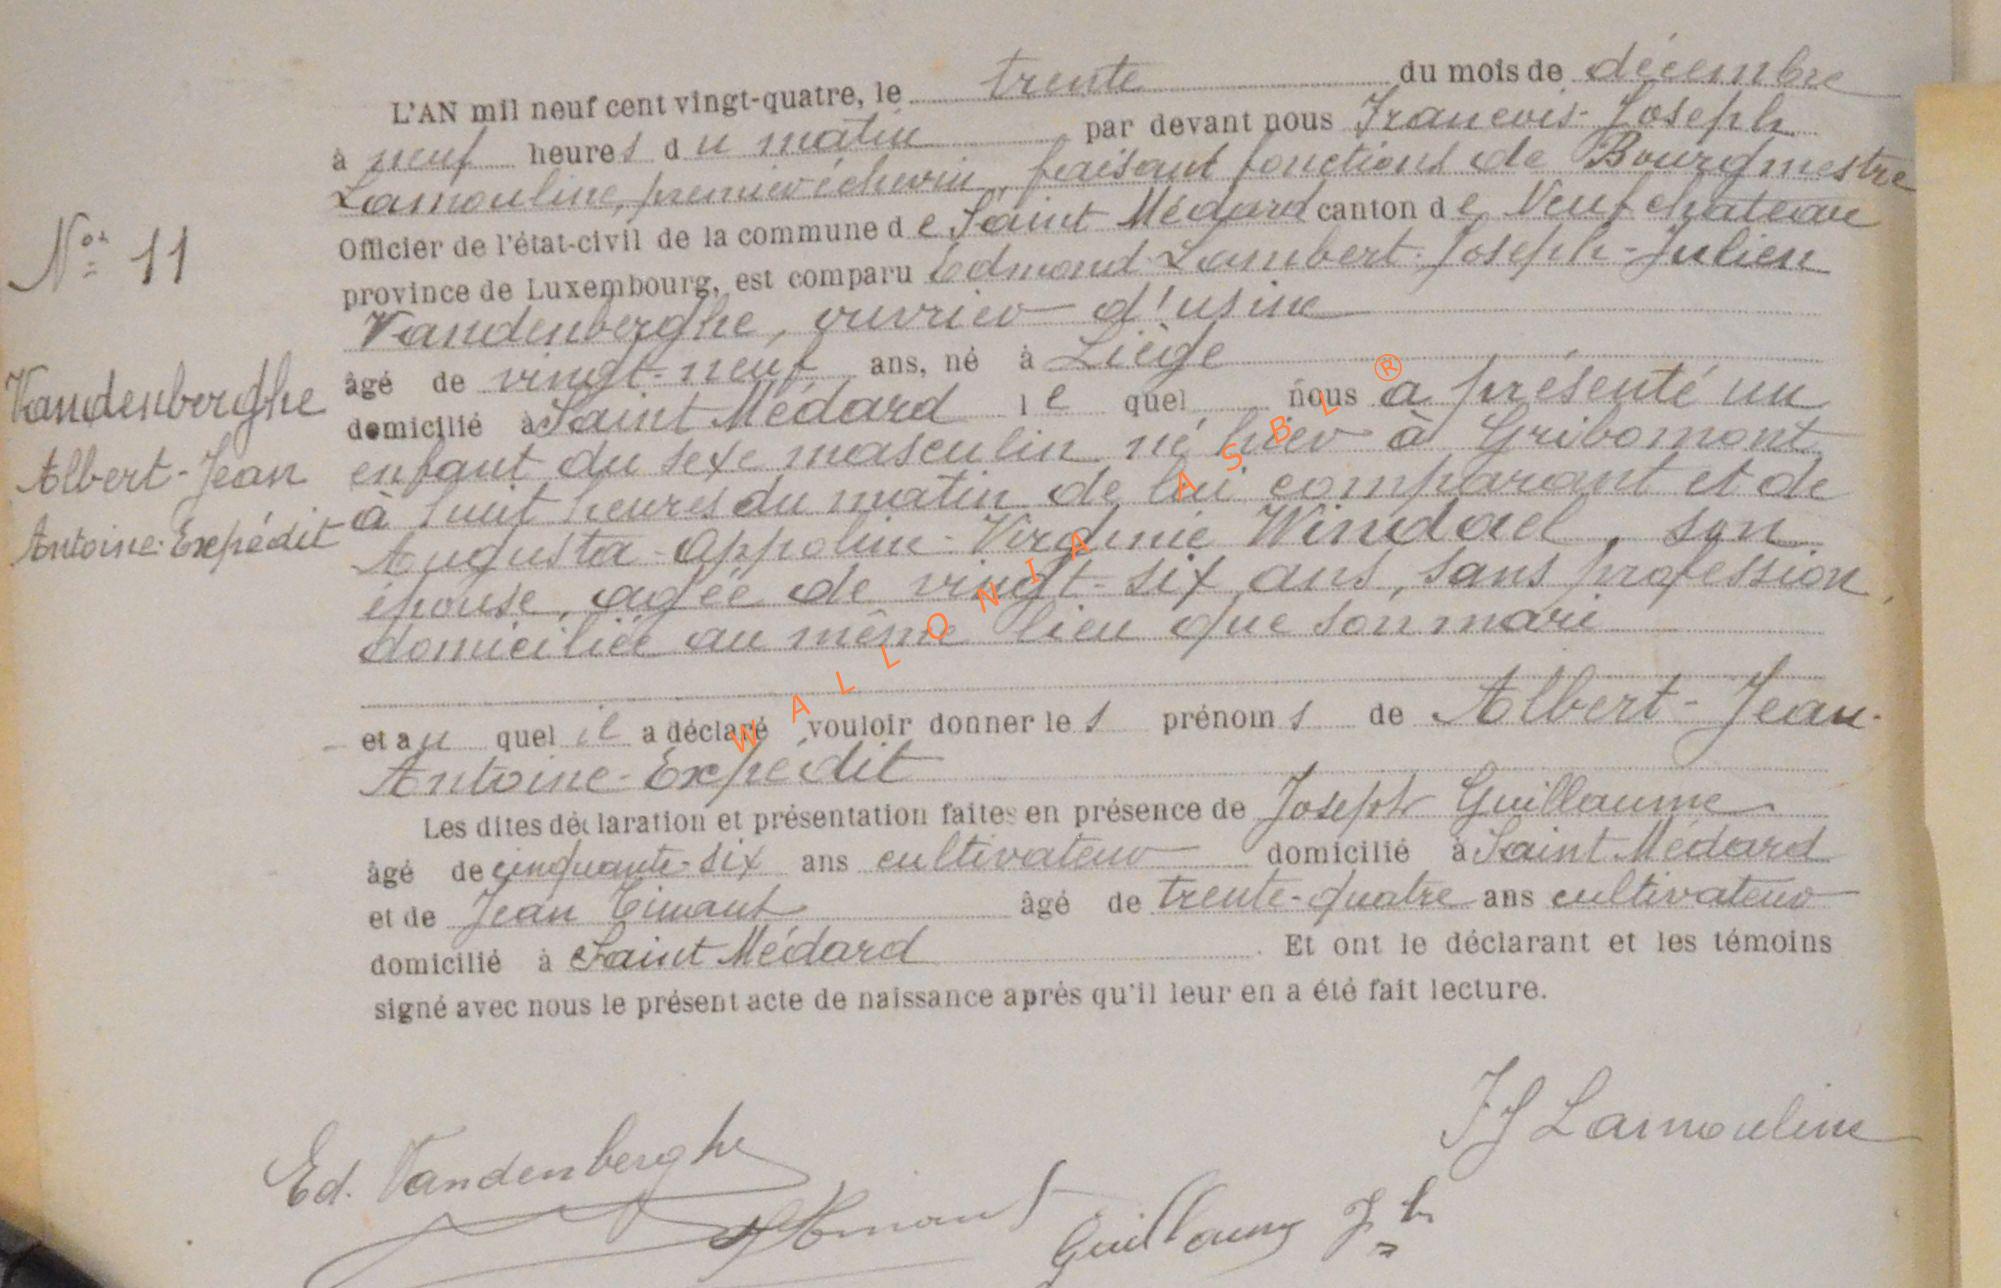 L'AN mil neuf cent vingt-quatre, le trente du mois de décembre
à neuf heures du matin par devant nous Francois-Joseph
Lamouline, premier échevin, faisant fonctions de Bourgmestre
Officier de l'état-civil de la commune de Saint Médard canton de Neufchateau
province de Luxembourg, est comparu Edmond Lambert-Joseph-Julien
Vandenberghe, ouvrier d'usine
âgé de vingt-neuf ans, né à Liège
domicilié à Saint Médard lequel nous a présenté un
enfant du sexe masculin né hier à Gribomont
à huit heures du matin de lui comparant et de
Augusta-Appoline-Virginie Windael, son
épouse, agée de vingt-six ans, sans profession,
domiciliée au même lieu que son mari
et au quel il a déclaré vouloir donner les prénoms de Albert-Jean-
Antoine-Expédit
Les dites déclaration et présentation faites en présence de Joseph Guillaume
âgé de cinquante-six ans cultivateur domicilié à Saint Médard
et de Jean âgé de trente-quatre ans cultivateur
domicilié à Saint Médard. Et ont le déclarant et les témoins
signé avec nous le présent acte de naissance après qu'il leur en a été fait lecture.
No. 11
Vandenberghe
Albert-Jean
Antoine-Expédit
WALLONIA ASBL ®
FJ Lamouline
Ed. Vandenberghe
Guillaume Jh